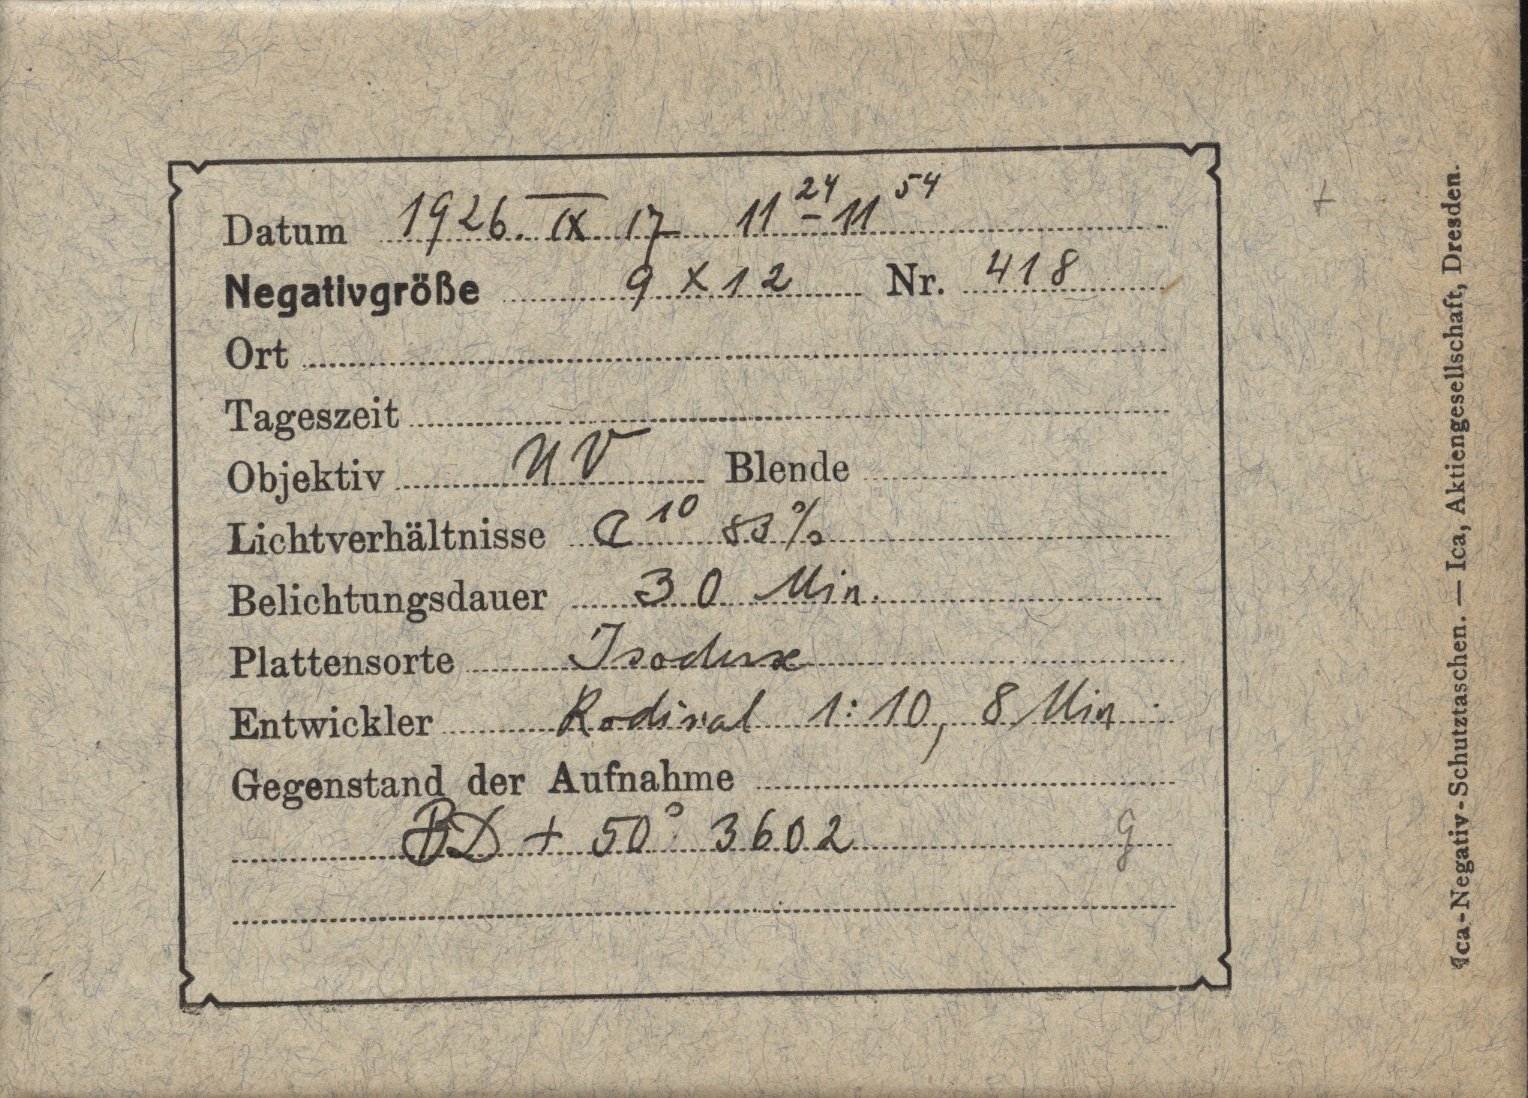 Datum 1926. IX 17 11 24 - 11 54
Negativgröße 9 x 12 Nr. 418
Ort
Tageszeit
Objektiv UV Blende
Lichtverhältnisse 10 83%
Belichtungsdauer 30 Min.
Plattensorte Isodux
Entwickler Rodinal 1:10, 8 Min.
Gegenstand der Aufnahme
BD + 50° 3602 g
+
Ica-Negativ-Schutztaschen. — Ica, Aktiengesellschaft, Dresden.